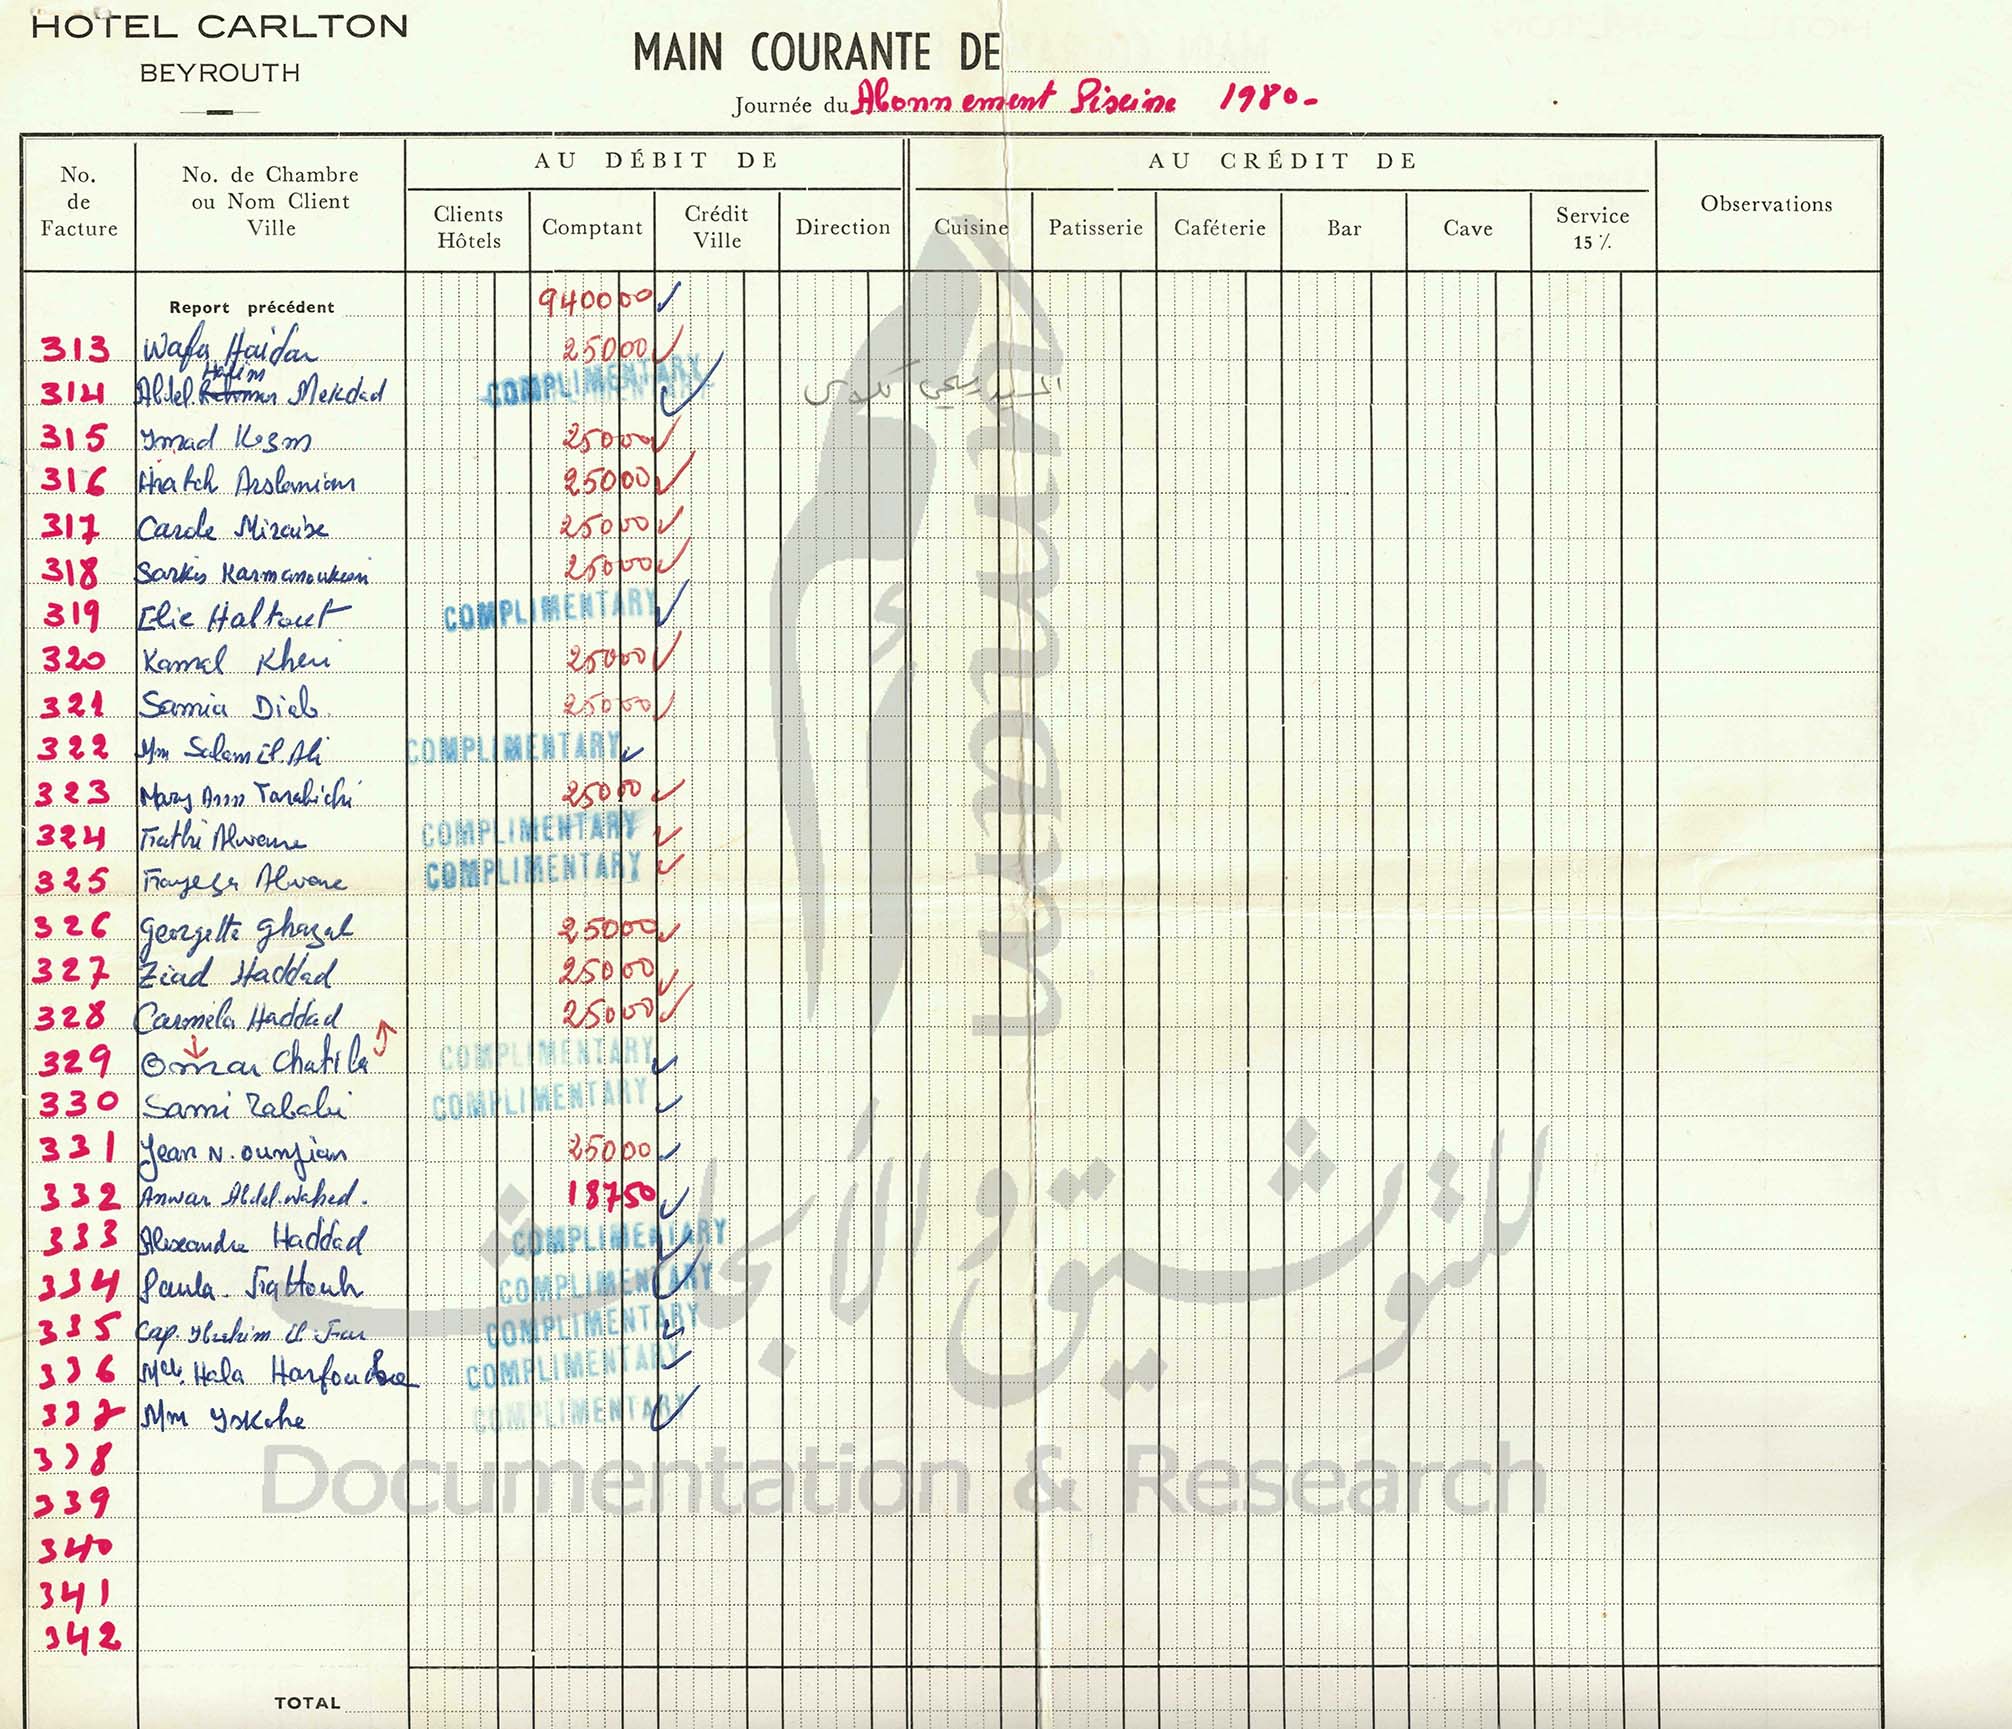 HOTEL CARLTON
BEYROUTH
MAIN COURANTE DE
Journée du Abonnement Piscine 1980.-
No. de Facture
No. de Chambre ou Nom Client Ville
AU DÉBIT DE
AU CRÉDIT DE
Observations
Clients Hôtels
Comptant
Crédit Ville
Direction
Cuisine
Patisserie
Caféterie
Bar
Cave
Service 15 %
Report précédent 940000
313 Wafa Haidar 25000
314 Abdel Halim Mekdad COMPLIMENTARY
315 Ymad 25000
316 Hratch Arslanian 25000
317 Carole 25000
318 Sarkis Karmanoukian 25000
319 Elie Haltout COMPLIMENTARY
320 Kamel Kheri 25000
321 Samia Diab. 25000
322 Mm Salam El Ali COMPLIMENTARY
323 Mary Ann Tarabichi 25000
324 Fathi Alwane COMPLIMENTARY
325 Alwane COMPLIMENTARY
326 Georgette Ghazal 25000
327 Ziad Haddad 25000
328 Carmela Haddad 25000
329 Omar Chatila COMPLIMENTARY
330 Sami COMPLIMENTARY
331 Jean N. Ounjian 25000
332 Anwar Abdel.Wahed. 18750
333 Alexandre Haddad COMPLIMENTARY
334 Paula. Fattouh COMPLIMENTARY
335 Cap. Ibrahim El COMPLIMENTARY
336 Mlle. Hala Harfouche COMPLIMENTARY
337 Mm COMPLIMENTARY
338
339
340
341
342
TOTAL
أمم
للتوثيق والأبحاث
Documentation & Research